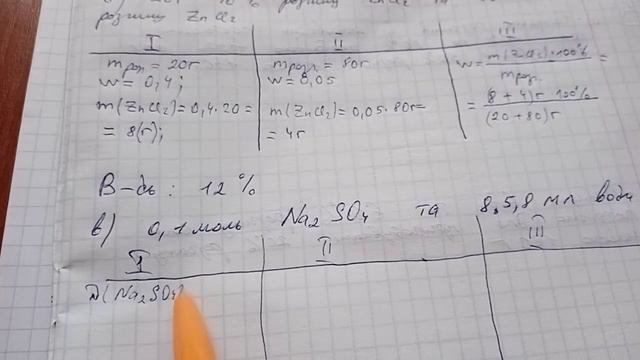 розчину ZnCl2
I II III
mроз. = 20г
w = 0,4;
m(ZnCl2) = 0,4·20 =
= 8(г);
mроз. = 80г
w = 0,05
m(ZnCl2) = 0,05·80г=
= 4г
w = m(ZnCl2)·100% / mроз. =
= (8 + 4)г·100% / (20+80)г
В-дь: 12 %
в) 0,1 моль Na2SO4 та 8,5,8 мл води
I II III
(Na2SO4)